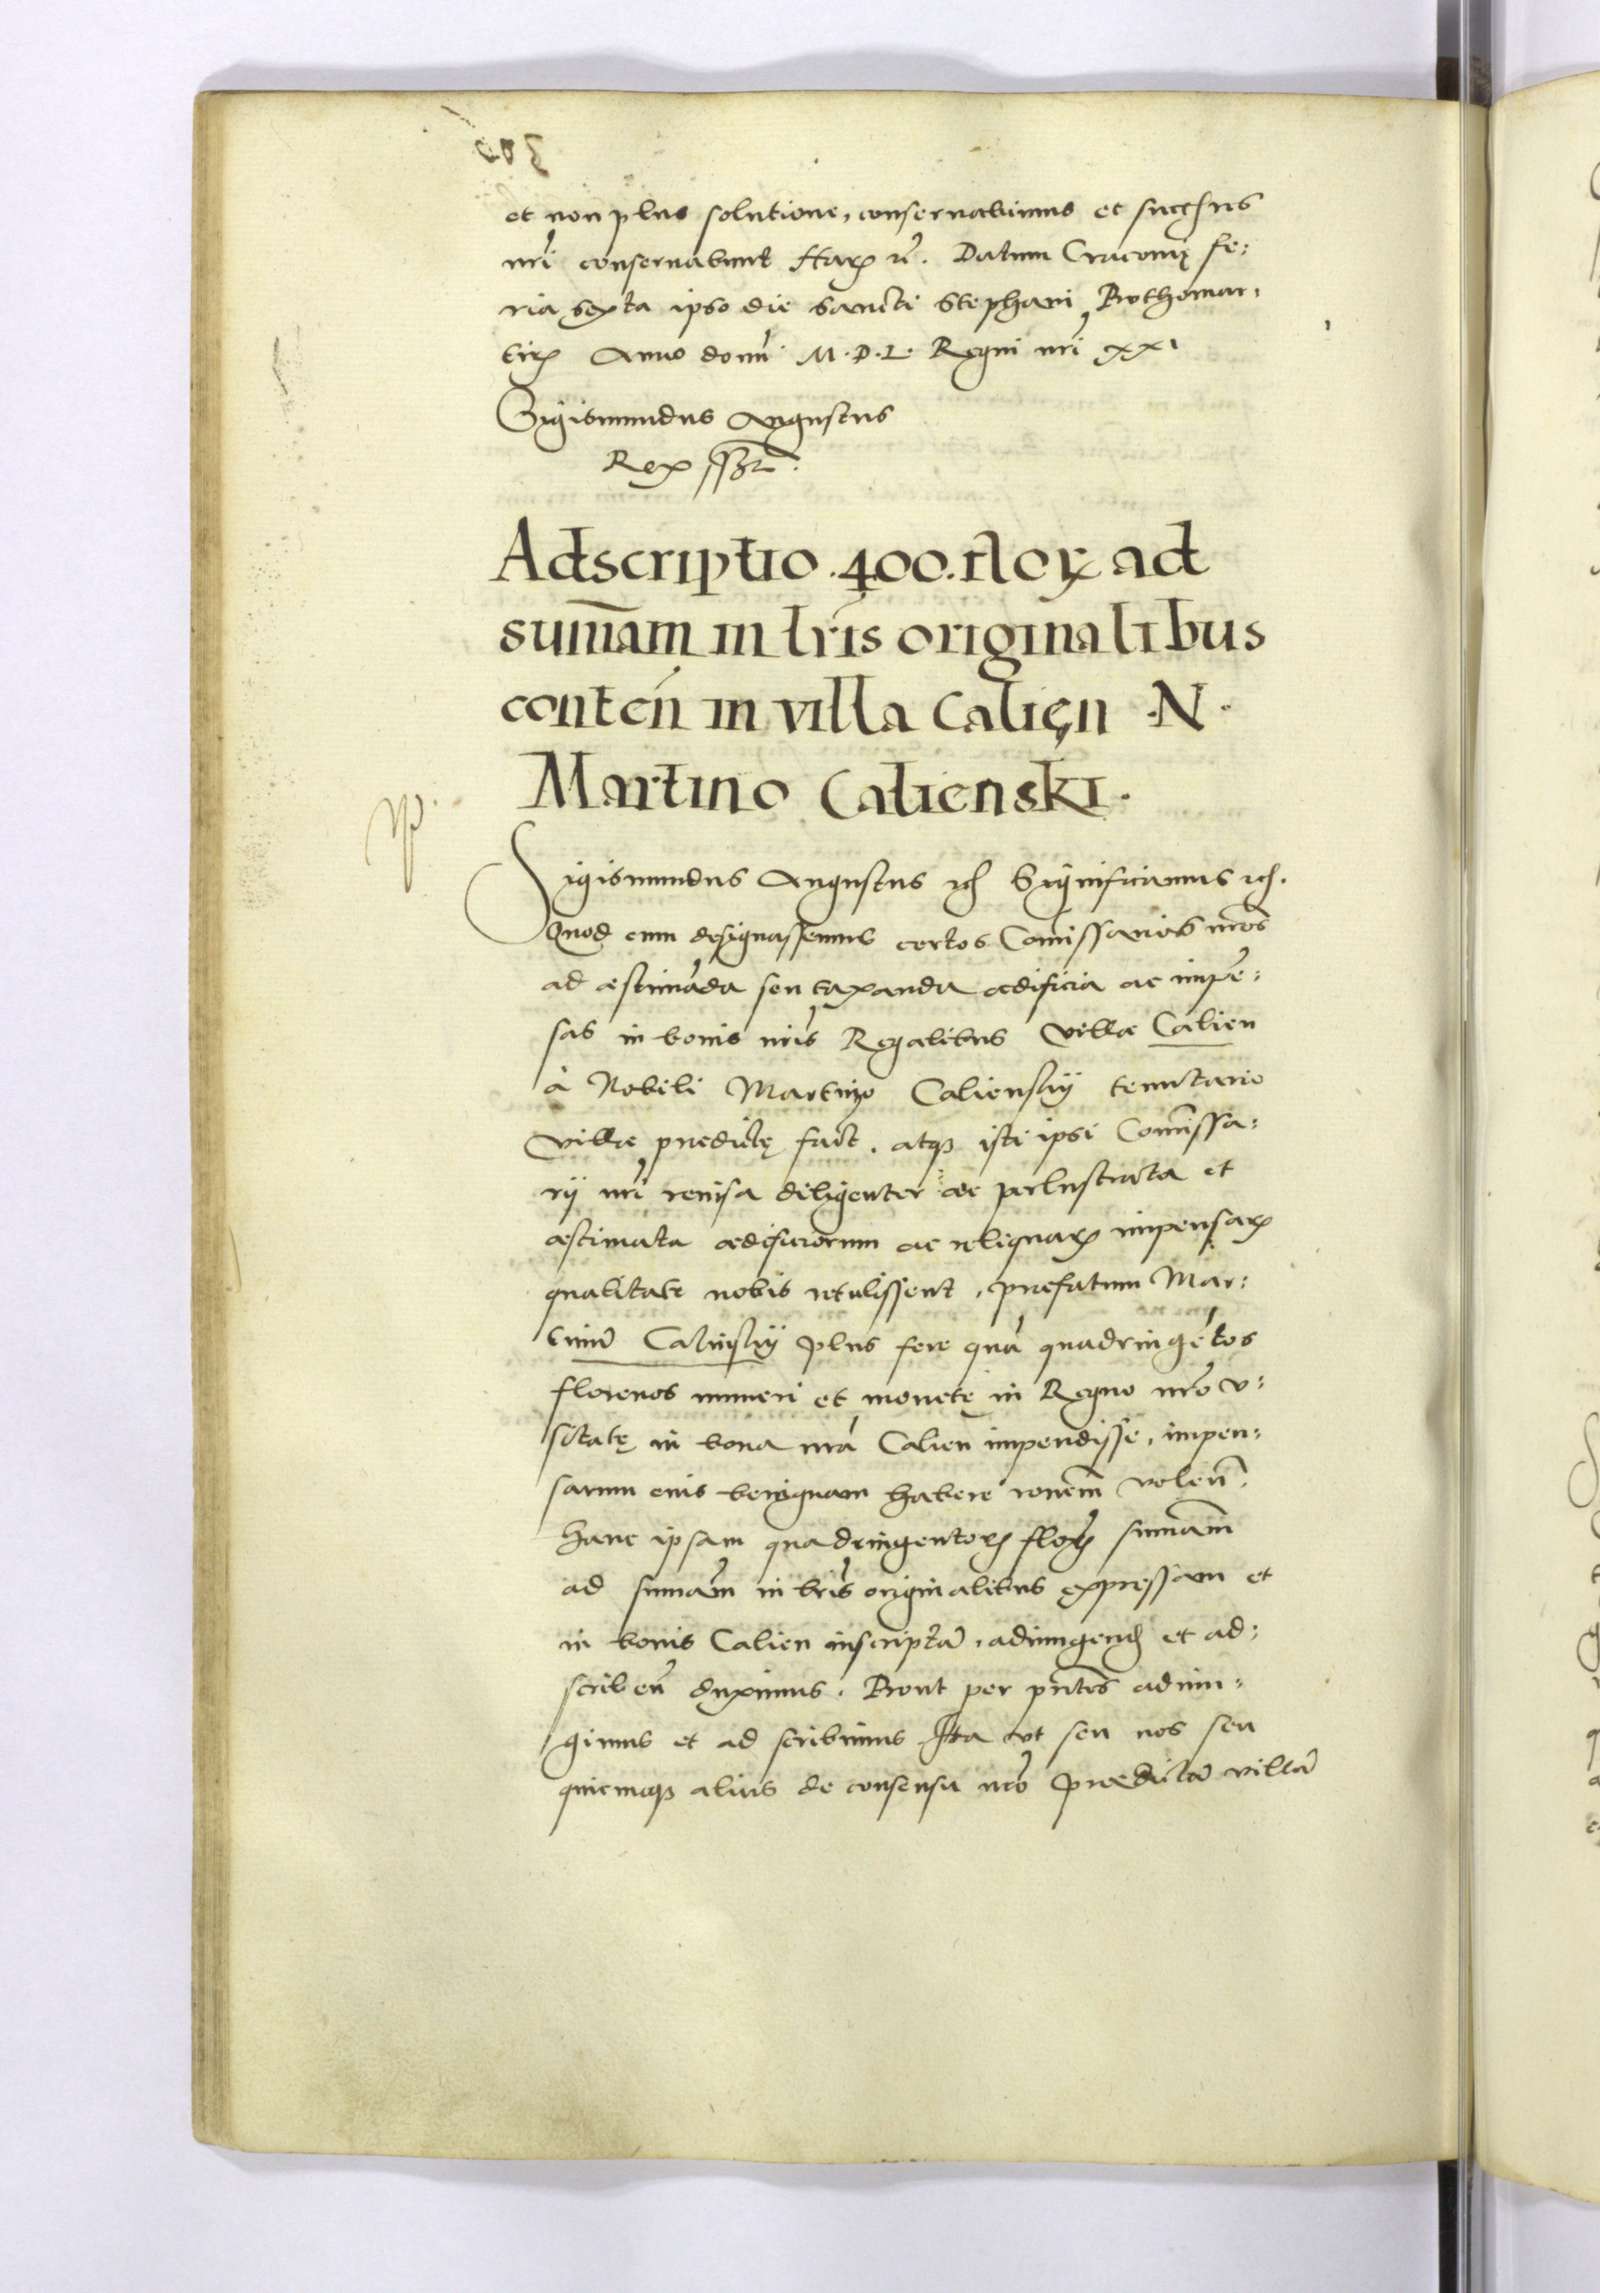 et non plus solutione, conservabimus et success̃res
nr̃i conservabunt Harꝝ rẽ. Datum Cracovię fe:
ria sexta ipso die Sancti Stephani Prothomar:
tirꝭ Anno domĩ M.D.L. Regni nr̃i xxi
Sigismundus Augustus
Rex sszt.
Adscriptio .400. floꝝ ad
sum̃am in lr̃is originalibus
conteñ in villa Calień .N.
Martino Calienski.
Sigismundus Augustus rcꝭ Significamus rcꝭ.
Quod cum designassemus certos Com̃issarios nr̃os
ad æstimãda seu taxanda ædificia ac impẽ:
sas in bonis nr̃is Regalibus Villæ Calien
à Nobili Martino Calienskÿ tenutario
Villæ prædictę fact. atqꝫ isti ipsi Com̃issa:
rij nr̃i revisa diligenter ac perlustrata et
æstimata ædificiorum ac reliquarꝝ impensarꝝ
qualitate nobis retulissent, præfatum Mar:
tinũ Calinskÿ plus fere quã quadringẽtos
florenos numeri et monetę in Regno nr̃o v:
sitatę in bona nr̃a Calien impendisse, impen:
sarum eius benignam habere rõnem̃ voleñ.
Hanc ipsam quadringentorꝝ floꝝ sum̃am
ad sum̃am in lr̃is originalibus expressam et
in bonis Calien inscriptã, adiungendꝭ et ad:
scribeñ duximus. Prout per pñtes adiun:
gimus et ad scribimus Ita vt seu nos seu
quicunqꝫ alius de consensu nr̃o prædictã villã